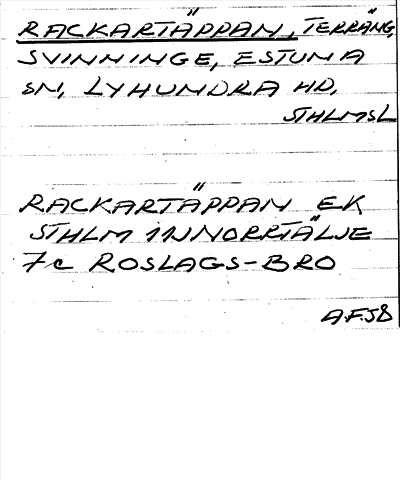 RACKARTÄPPAN, TERRÄNG,
SVINNINGE, ESTUNA
SN, LYHUNDRA HD,
STHLMSL
RACKARTÄPPAN EK
STHLM 11N NORRTÄLJE
7c ROSLAGS-BRO
A.F.58